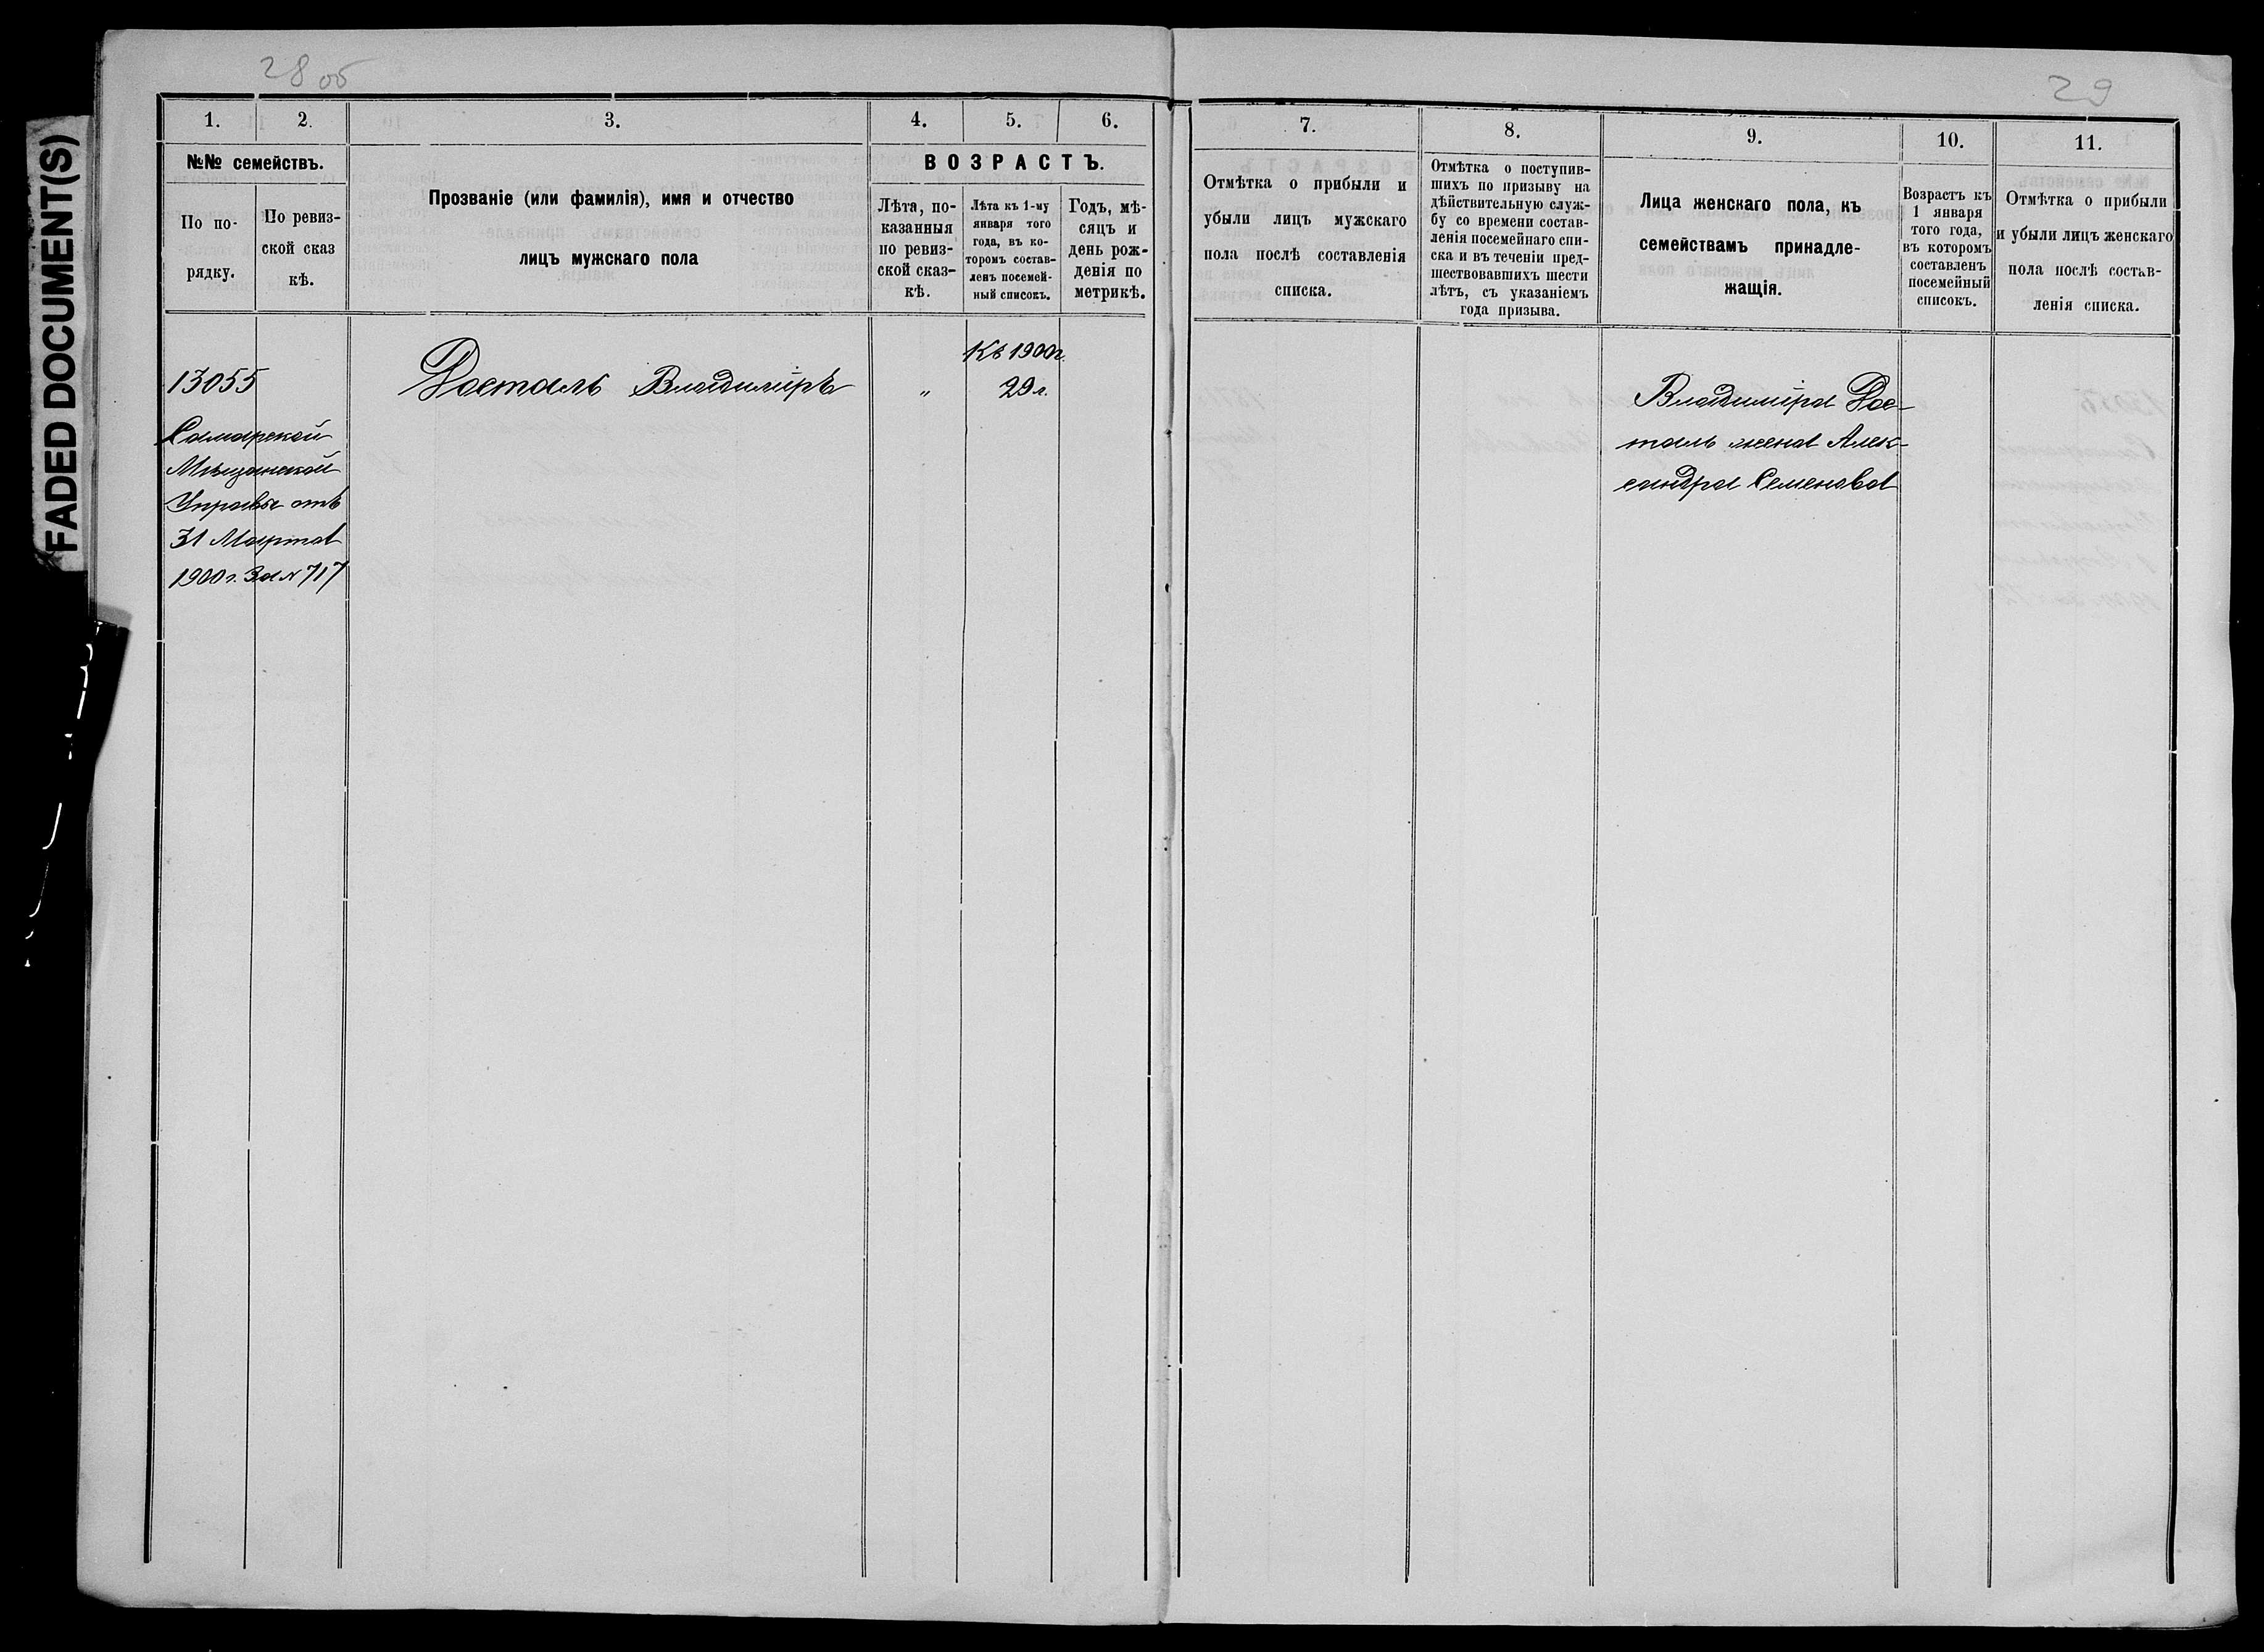 28 об
29
FADED DOCUMENT(S)
1.
2.
3.
4.
5.
6.
№№ семействъ.
По по-
рядку.
По ревиз-
ской сказ
кѣ.
Прозваніе (или фамилія), имя и отчество
лицъ мужскаго пола
ВОЗРАСТЪ.
Лѣта, по-
казанныя
по ревиз-
ской сказ-
кѣ.
Лѣта къ 1-му
января того
года, въ ко-
торомъ состав-
ленъ посемей-
ный списокъ.
Годъ, мѣ-
сяцъ и
день рож-
денія по
метрикѣ.
13055
Самарской
Мѣщанской
Управы отъ
31 Марта
1900 г. За № 717
Досталь Владиміръ
„
Къ 1900 г.
29 л.
7.
8.
9.
10.
11.
Отмѣтка о прибыли и
убыли лицъ мужскаго
пола послѣ составленія
списка.
Отмѣтка о поступив-
шихъ по призыву на
дѣйствительную служ-
бу со времени состав-
ленія посемейнаго спи-
ска и въ теченіи пред-
шествовавшихъ шести
лѣтъ, съ указаніемъ
года призыва.
Лица женскаго пола, къ
семействамъ принадле-
жащія.
Возрастъ къ
1 января
того года,
въ которомъ
составленъ
посемейный
списокъ.
Отмѣтка о прибыли
и убыли лицъ женскаго
пола послѣ состав-
ленія списка.
Владиміра Дос-
таль жена Алек-
сандра Семенова